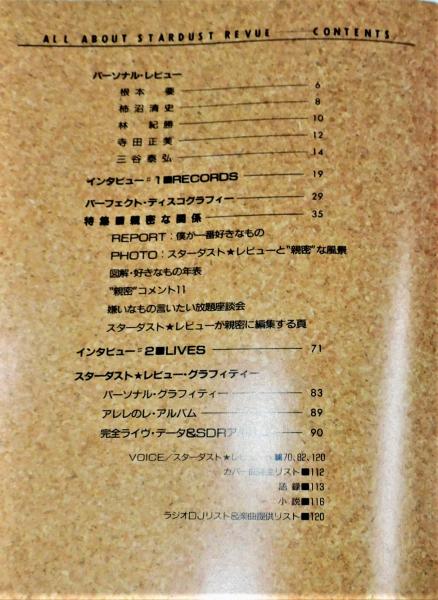 ALL ABOUT STARDUST REVUE CONTENTS
パーソナル・レビュー
根本 要 6
柿沼清史 8
林 紀勝 10
寺田正美 12
三谷泰弘 14
インタビュー#1■RECORDS 19
パーフェクト・ディスコグラフィー 29
特集■親密な関係 35
REPORT:僕が一番好きなもの
PHOTO:スターダスト★レビューと"親密"な風景
図解・好きなもの年表
"親密"コメント11
嫌いなもの言いたい放題座談会
スターダスト★レビューが親密に編集する頁
インタビュー#2■LIVES 71
スターダスト★レビュー・グラフィティー
パーソナル・グラフィティー 83
アレレのレ・アルバム 89
完全ライヴ・データ&SDR 90
VOICE/スターダスト★ 70、82、120
カバー リスト■112
語録■113
小説■116
ラジオDJリスト&楽曲提供リスト■120